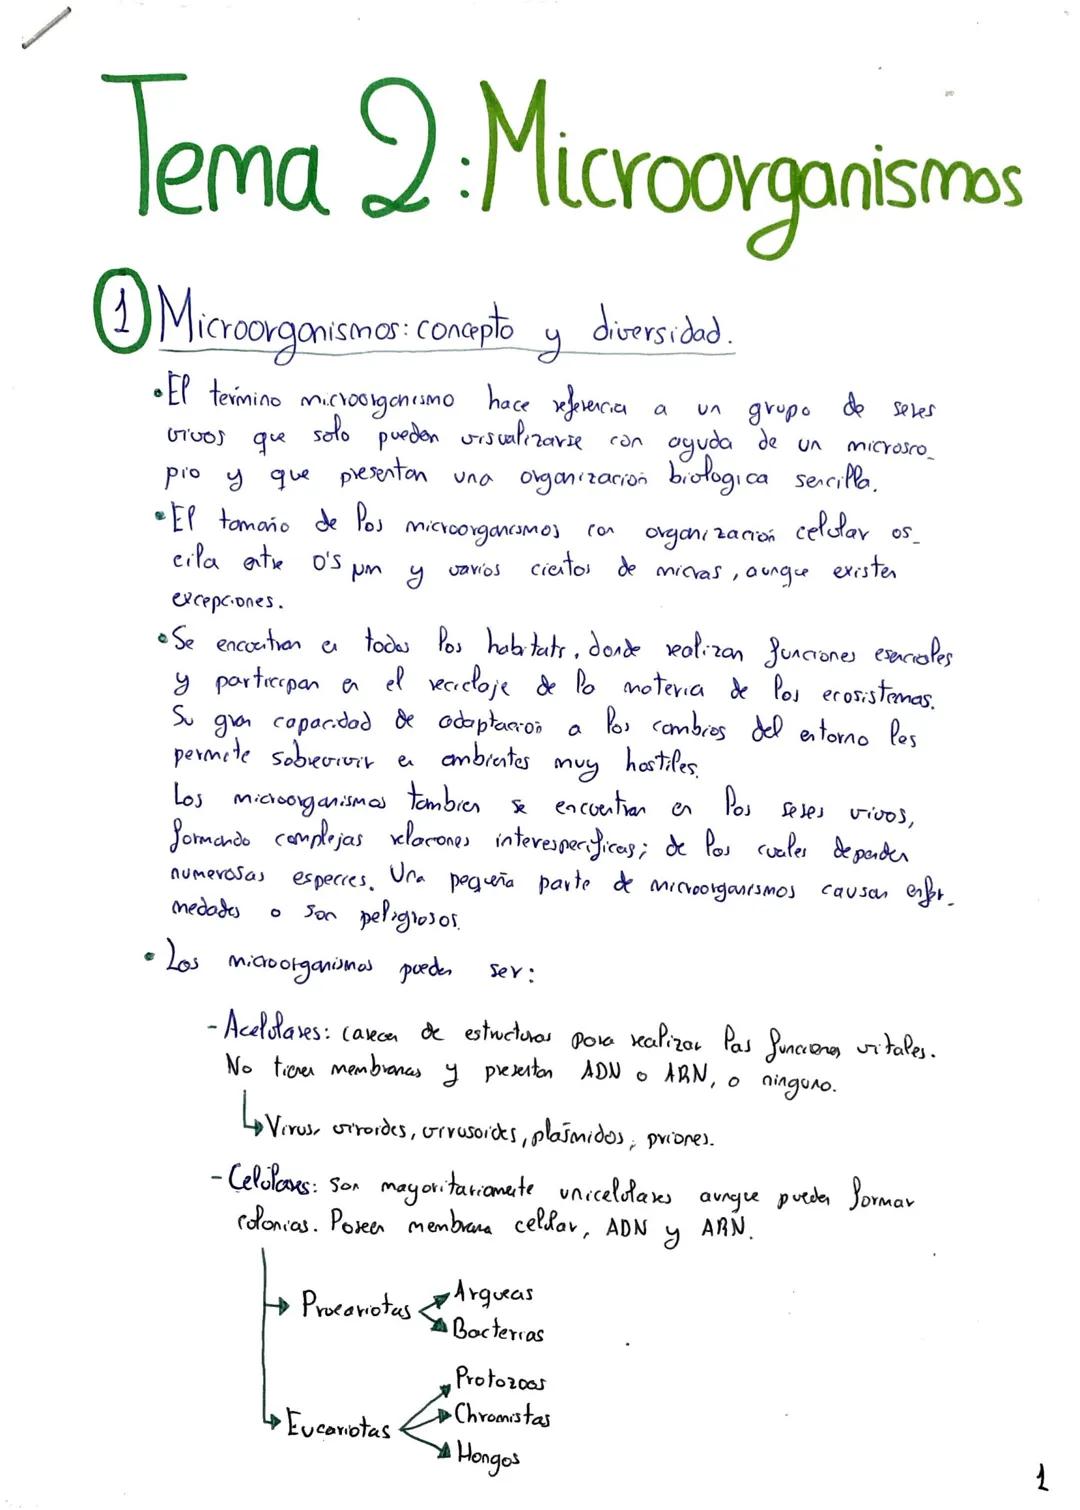 Tema 2: Microorganismos
1 Microorganismos: concepto y diversidad.
• El termino microorganismo hace referencia a un grupo de seres
vivos que solo pueden visualizarse con ayuda de un microsco_
pio y que presentan una organización biologica sencilla.
• El tamaño de los microorganismos con organización celular os_
cila entre 0's µm y varios cientos de micras, aunque existen
excepciones.
• Se encuentran en todos los habitats, donde realizan funciones esenciales
y participan en el reciclaje de la materia de los ecosistemas.
Su gran capacidad de adaptación a los cambios del entorno les
permite sobrevivir en ambientes muy hostiles.
Los microorganismos tambien se encuentran en los seres vivos,
formando complejas relaciones interespecificas; de los cuales dependen
numerosas especies. Una pequeña parte de microorganismos causan enfer_
medades o son peligrosos.
• Los microorganismos pueden ser:
- Acelulares: carecen de estructuras para realizar las funciones vitales.
No tienen membranas y presentan ADN o ARN, o ninguno.
Virus, viroides, virusoides, plásmidos, priones.
- Celulares: son mayoritariamente unicelulares aunque pueden formar
colonias. Poseen membrana celular, ADN y ARN.
Procariotas
Arqueas
Bacterias
Eucariotas
Protozoos
Chromistas
Hongos
1